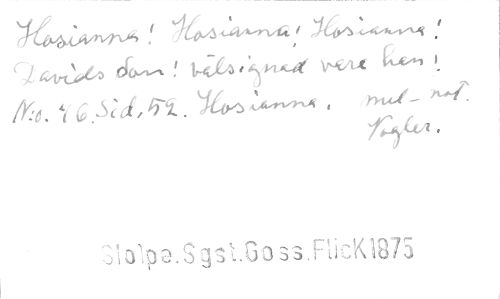 Hosianna! Hosianna! Hosianna!
Davids Son! välsignad vare han!
N:o. 46. Sid. 52. Hosianna. mel-not.
Vogler.
Stolpe. Sgst. Goss. Flick 1875